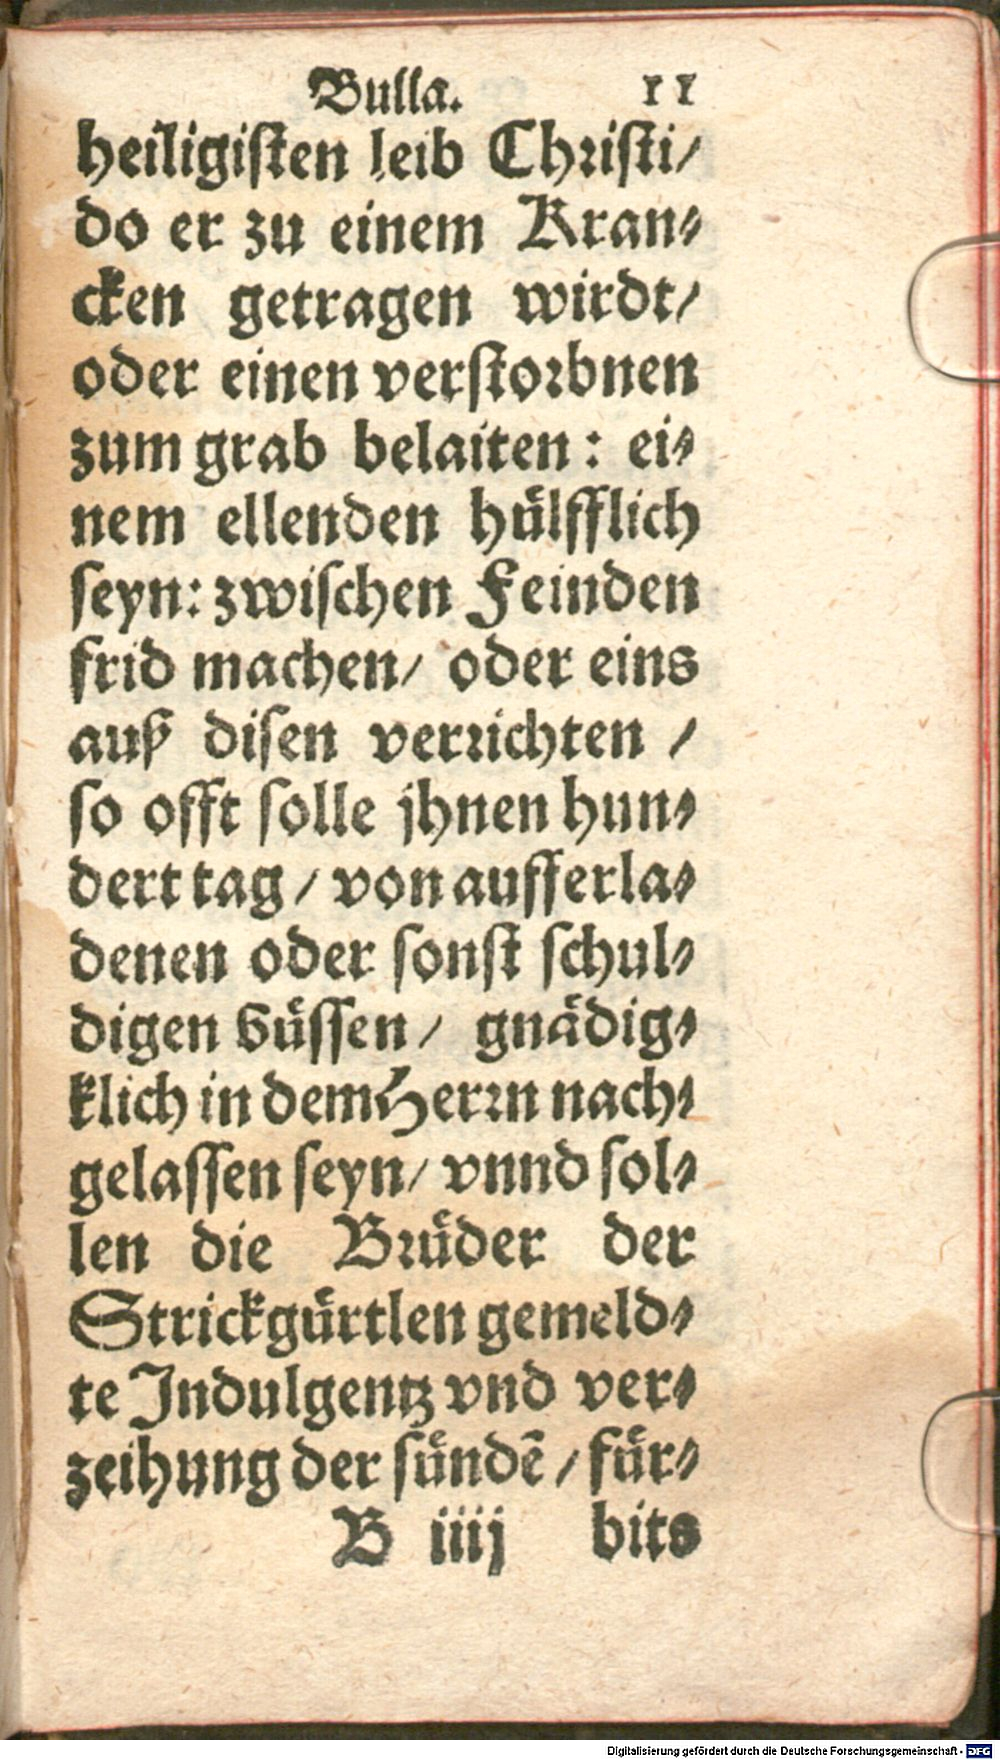 Bulla. 11
heiligiſten leib Chꝛiſti/
do er zu einem Kran⸗
cken getragen wirdt/
oder einen verſtoꝛbnen
zum grab belaiten: ei⸗
nem ellenden huͤlfflich
ſeyn: zwiſchen Feinden
frid machen/ oder eins
auß diſen verꝛichten /
ſo offt ſolle jhnen hun⸗
dert tag / von aufferla⸗
denen oder ſonſt ſchul⸗
digen buͤſſen/ gnaͤdig⸗
klich in dem Herꝛn nach⸗
gelaſſen ſeyn/ vnnd ſol⸗
len die Bꝛuͤder der
Strickguͤrtlen gemeld⸗
te Indulgentz vnd ver⸗
zeihung der ſuͤndē / fuͤr⸗
B iiij bits
Digitalisierung gefördert durch die Deutsche Forschungsgemeinschaft - DFG